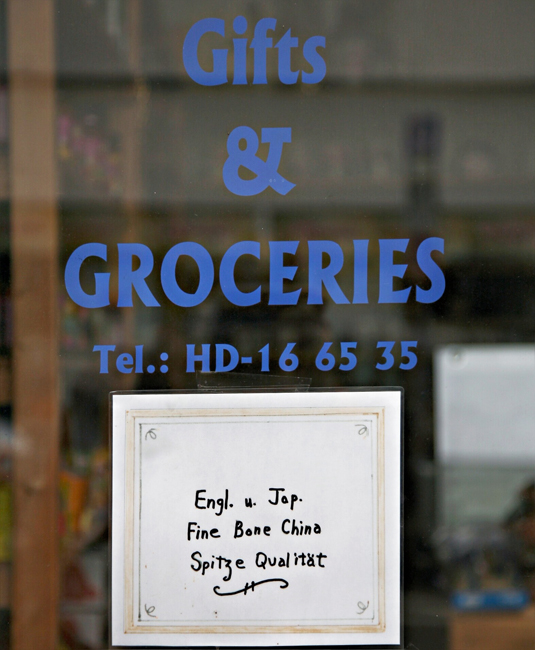 Gifts
&
GROCERIES
Tel.: HD-16 65 35
Engl. u. Jap.
Fine Bone China
Spitze Qualität